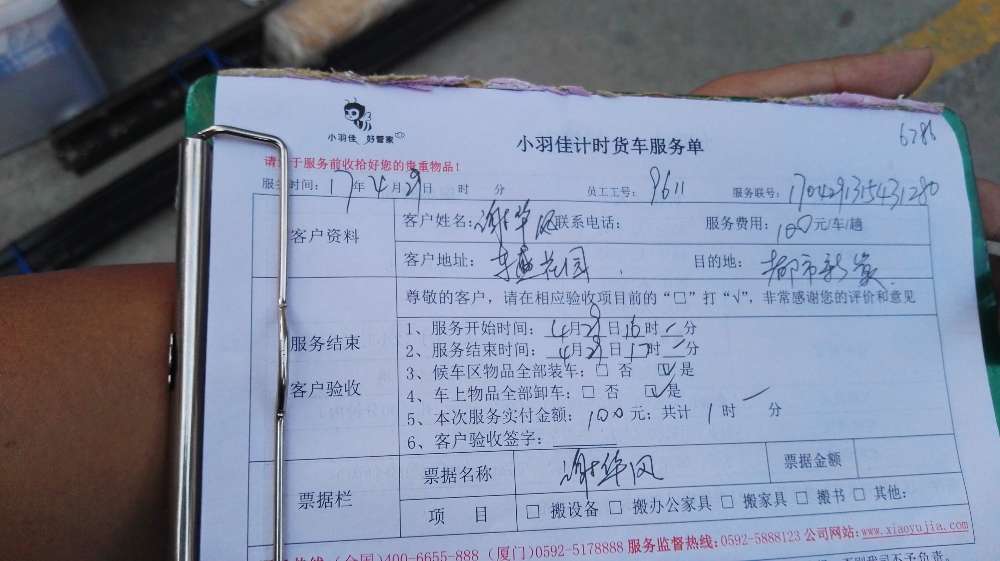 小羽佳 好管家
小羽佳计时货车服务单
6286
请于服务前收拾好您的贵重物品!
服务时间: 17年4月29日 时 分 员工工号: 9611 服务联号: 1704291315431280
客户资料
客户姓名: 谢华风 联系电话: 服务费用: 100元/车/趟
客户地址: 花园 目的地: 都市新
尊敬的客户，请在相应验收项目前的“□”打“√”，非常感谢您的评价和意见
服务结束
客户验收
1、服务开始时间: 4月29日16时 分
2、服务结束时间: 4月29日17时 分
3、候车区物品全部装车: □ 否 ☑ 是
4、车上物品全部卸车: □ 否 ☑ 是
5、本次服务实付金额: 100元; 共计 1时 分
6、客户验收签字:
票据栏
票据名称 谢华风 票据金额
项 目 □ 搬设备 □ 搬办公家具 □ 搬家具 □ 搬书 □ 其他:
热线 (全国)400-6655-888 (厦门)0592-5178888 服务监督热线: 0592-5888123 公司网站: www.xiaoyujia.com
否则我司不予负责。